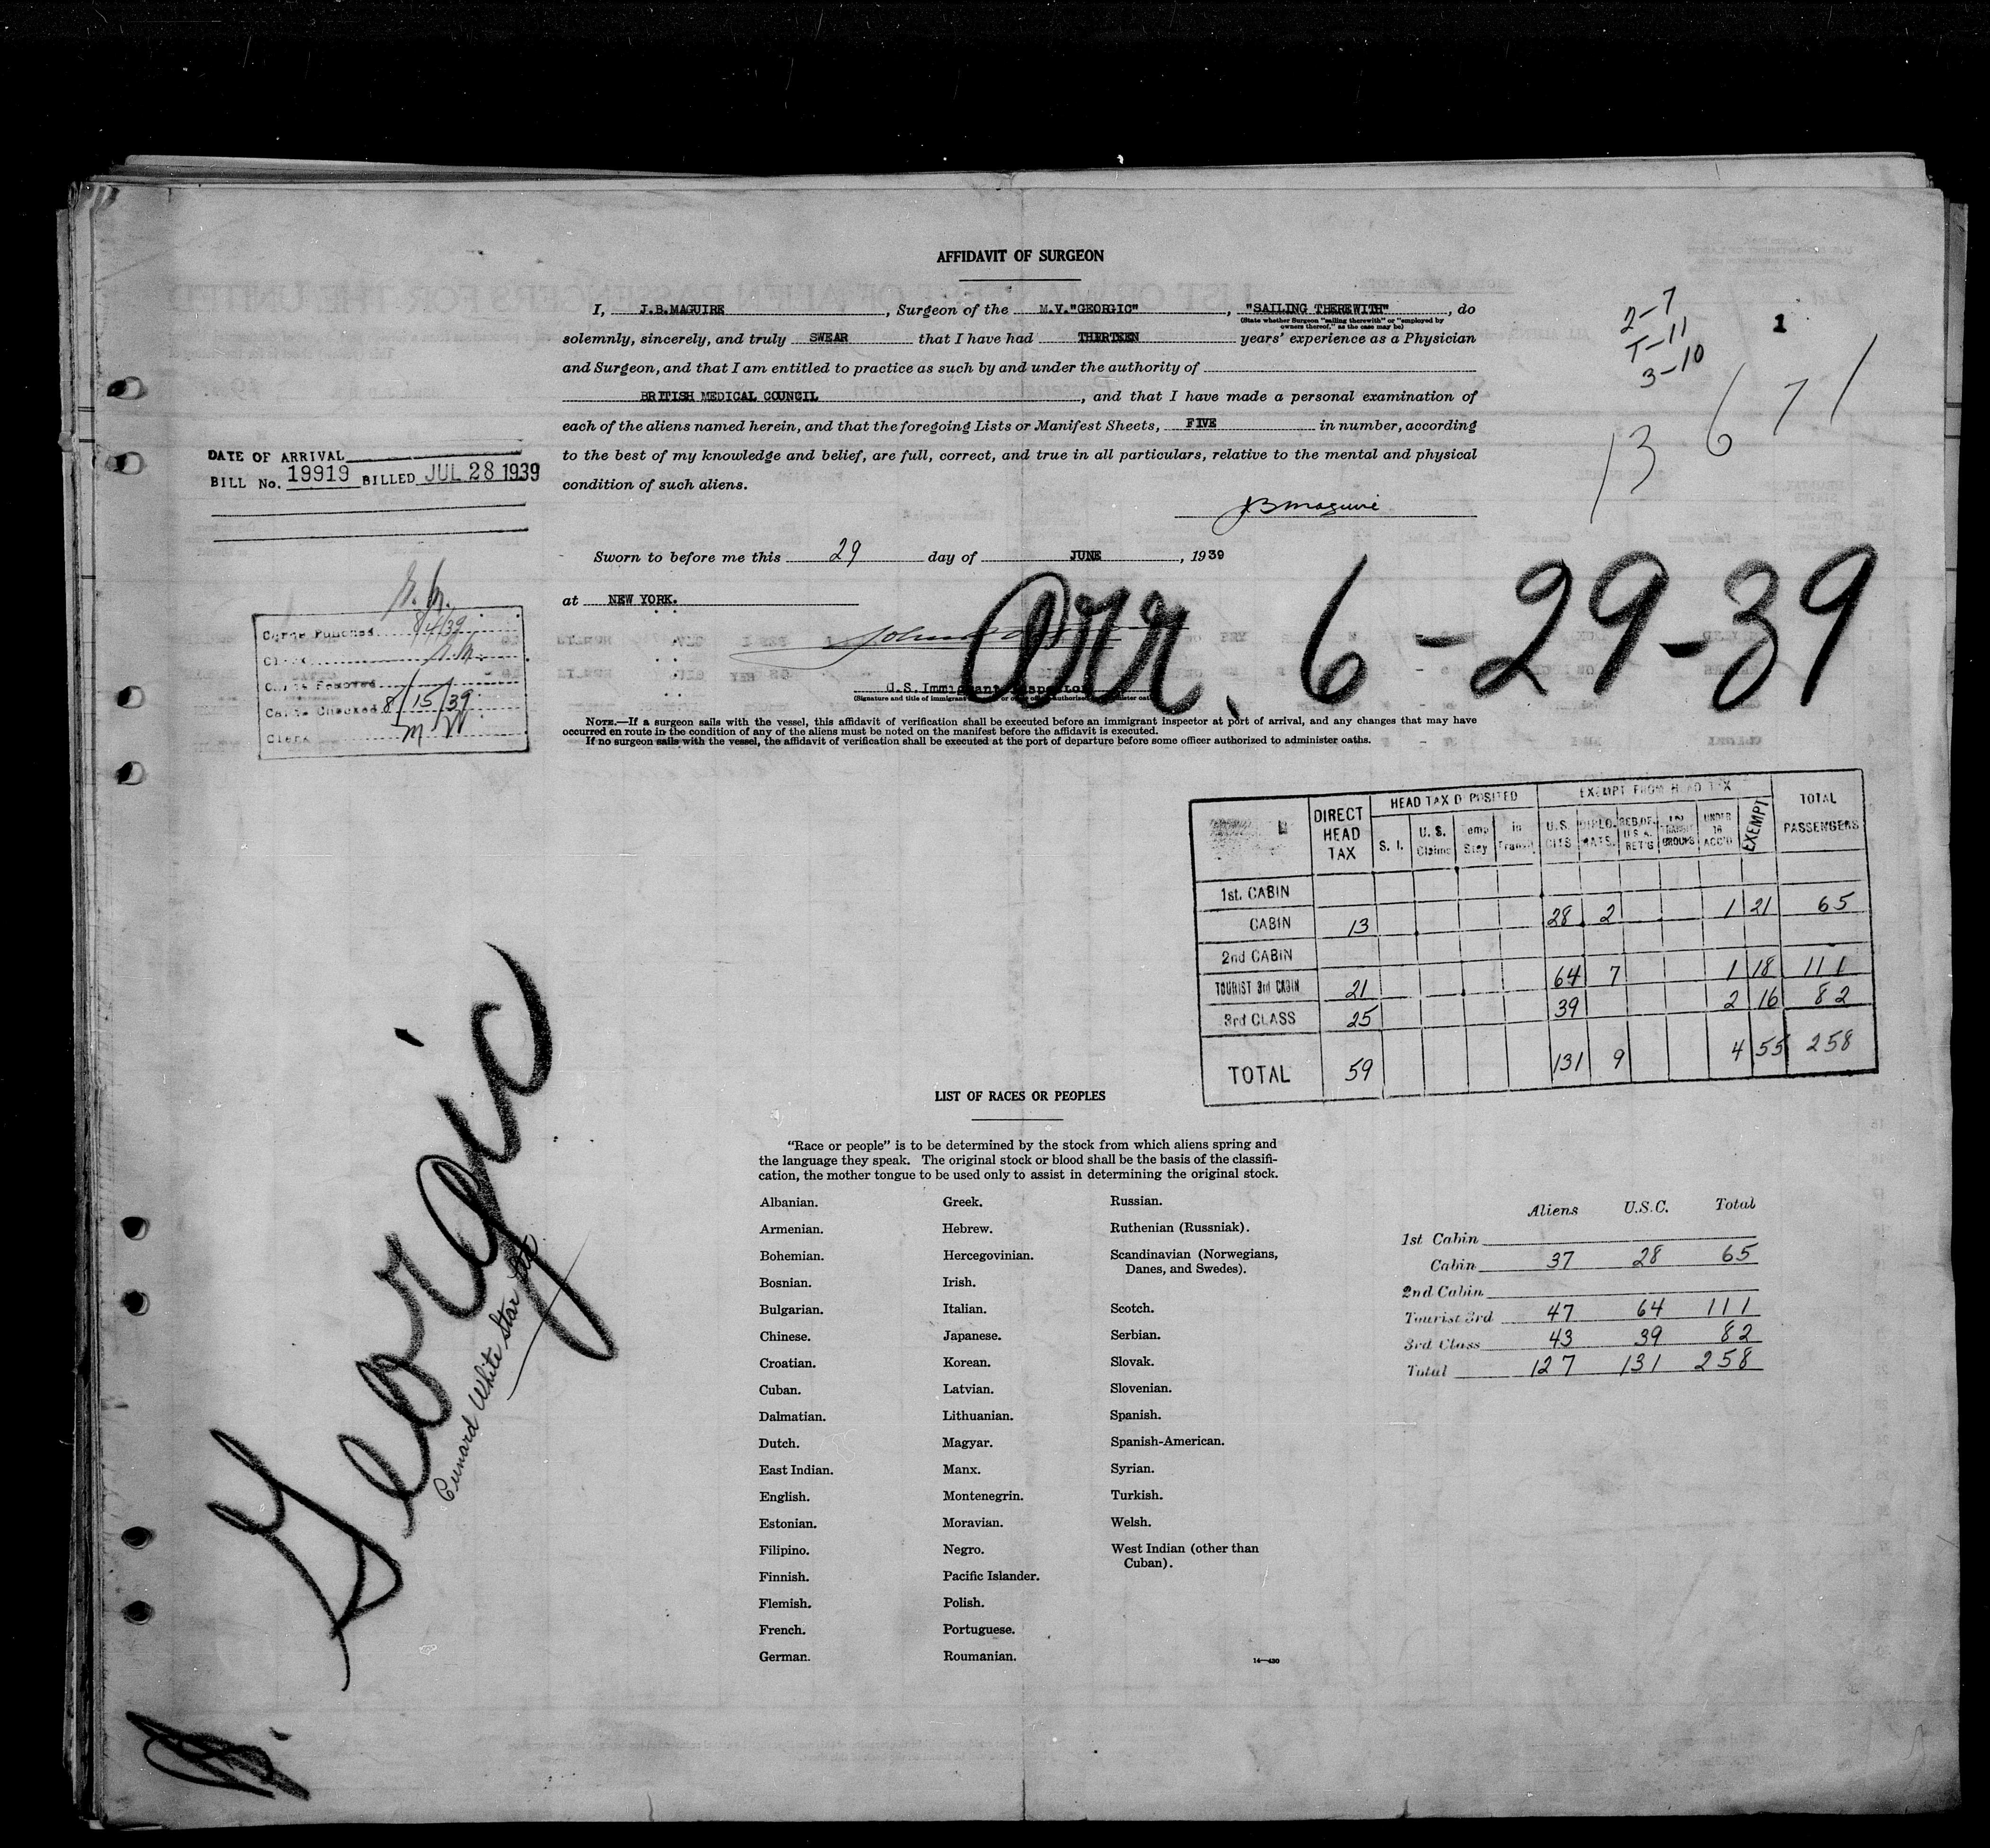 AFFIDAVIT OF SURGEON
I, J.B.MAGUIRE, Surgeon of the M.V."GEORGIC", "SAILING THEREWITH", do
(State whether Surgeon "sailing therewith" or "employed by
owners thereof," as the case may be)
solemnly, sincerely, and truly SWEAR that I have had THIRTEEN years' experience as a Physician
and Surgeon, and that I am entitled to practice as such by and under the authority of
BRITISH MEDICAL COUNCIL, and that I have made a personal examination of
each of the aliens named herein, and that the foregoing Lists or Manifest Sheets, FIVE in number, according
to the best of my knowledge and belief, are full, correct, and true in all particulars, relative to the mental and physical
condition of such aliens.
JB Maguire
Sworn to before me this 29 day of JUNE, 1939
at NEW YORK.
John
U.S. Immigrant Inspector
2-7
T-11
3-10
1
13671
DATE OF ARRIVAL
BILL No. 19919 BILLED JUL 28 1939
Arr. 6-29-39
8/4/39
Clerk
Cards Removed
Cards Checked 8/15/39
Clerk M W
NOTE.—If a surgeon sails with the vessel, this affidavit of verification shall be executed before an immigrant inspector at port of arrival, and any changes that may have
occurred en route in the condition of any of the aliens must be noted on the manifest before the affidavit is executed.
If no surgeon sails with the vessel, the affidavit of verification shall be executed at the port of departure before some officer authorized to administer oaths.
DIRECT HEAD TAX
HEAD TAX DEPOSITED
EXEMPT FROM HEAD TAX
TOTAL PASSENGERS
S. I. U. S. Claims Temp Stay in Transit U.S. CITS DIPLO. MATS. RES.OF U.S.A. RET'G IN TRANSIT GROUPS UNDER 16 ACC'D EXEMPT
1st. CABIN
CABIN 13 28 2 1 21 65
2nd CABIN
TOURIST 3rd CABIN 21 64 7 1 18 111
3rd CLASS 25 39 2 16 82
TOTAL 59 131 9 4 55 258
Georgic
Cunard White Star Ltd
LIST OF RACES OR PEOPLES
"Race or people" is to be determined by the stock from which aliens spring and
the language they speak. The original stock or blood shall be the basis of the classifi-
cation, the mother tongue to be used only to assist in determining the original stock.
Albanian.
Armenian.
Bohemian.
Bosnian.
Bulgarian.
Chinese.
Croatian.
Cuban.
Dalmatian.
Dutch.
East Indian.
English.
Estonian.
Filipino.
Finnish.
Flemish.
French.
German.
Greek.
Hebrew.
Hercegovinian.
Irish.
Italian.
Japanese.
Korean.
Latvian.
Lithuanian.
Magyar.
Manx.
Montenegrin.
Moravian.
Negro.
Pacific Islander.
Polish.
Portuguese.
Roumanian.
Russian.
Ruthenian (Russniak).
Scandinavian (Norwegians,
Danes, and Swedes).
Scotch.
Serbian.
Slovak.
Slovenian.
Spanish.
Spanish-American.
Syrian.
Turkish.
Welsh.
West Indian (other than
Cuban).
14—430
Aliens U.S.C. Total
1st Cabin
Cabin 37 28 65
2nd Cabin
Tourist 3rd 47 64 111
3rd Class 43 39 82
Total 127 131 258